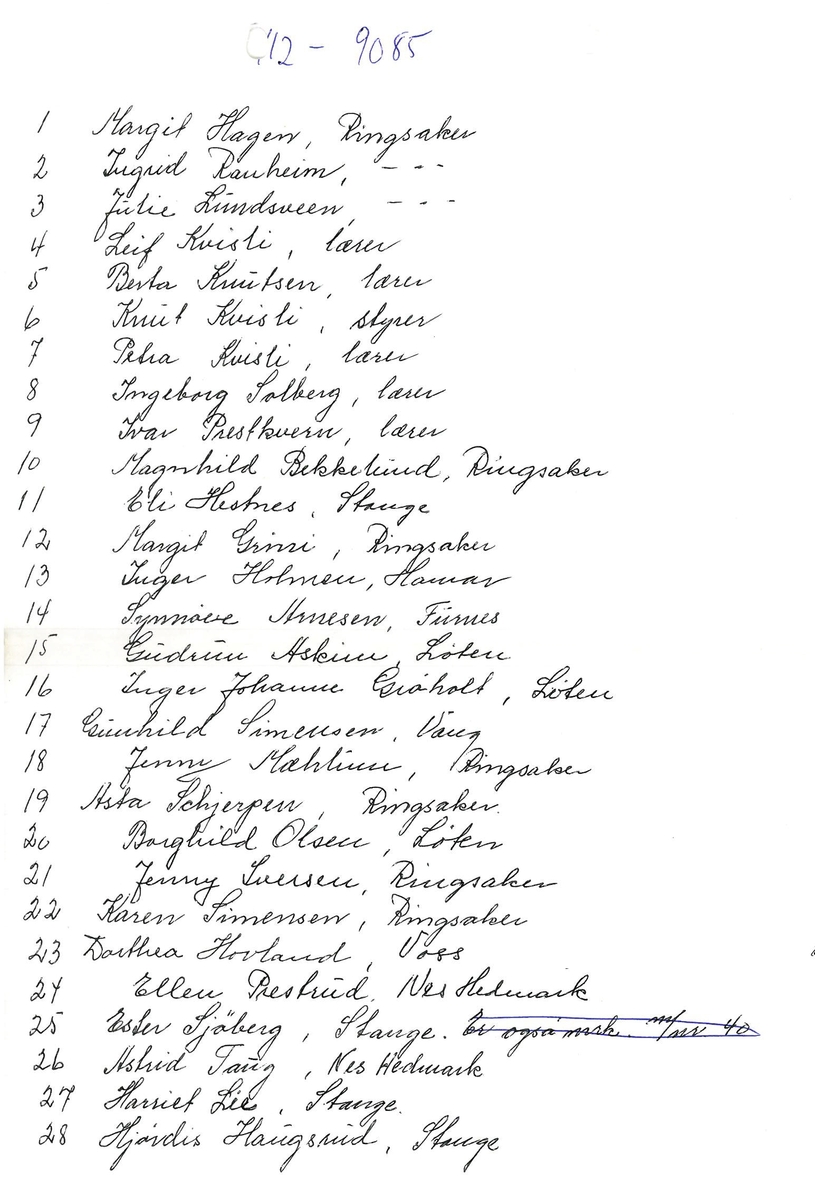 12 - 9085
1 Margit Hagen, Ringsaker
2 Ingrid Rauheim, - - -
3 Julie Lundsveen, - - -
4 Leif Kvisli, lærer
5 Berta Knutsen, lærer
6 Knut Kvisli, styrer
7 Petra Kvisli, lærer
8 Ingeborg Solberg, lærer
9 Ivar Prestkvern, lærer
10 Magnhild Bekkelund, Ringsaker
11 Eli Hestnes, Stange
12 Margit Grini, Ringsaker
13 Inger Holmen, Hamar
14 Synnøve Arnesen, Furnes
15 Gudrun Askim, Løten
16 Inger Johanne Gråholt, Løten
17 Gunhild Simensen, Vang
18 Jenny Mæhlum, Ringsaker
19 Asta Schjerpen, Ringsaker.
20 Borghild Olsen, Løten
21 Jenny Iversen, Ringsaker
22 Karen Simensen, Ringsaker
23 Dorthea Hovland, Voss
24 Ellen Prestrud, Nes Hedmark
25 Ester Sjöberg, Stange. Er også mrk. m/nr 40
26 Astrid Taug, Nes Hedmark
27 Harriet Lie, Stange.
28 Hjørdis Haugsrud, Stange